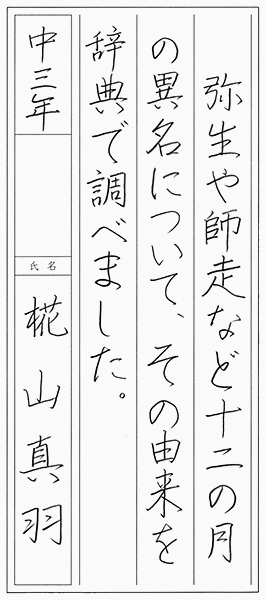 弥生や師走など十二の月
の異名について、その由来を
辞典で調べました。
中三年
氏名
椛山真羽